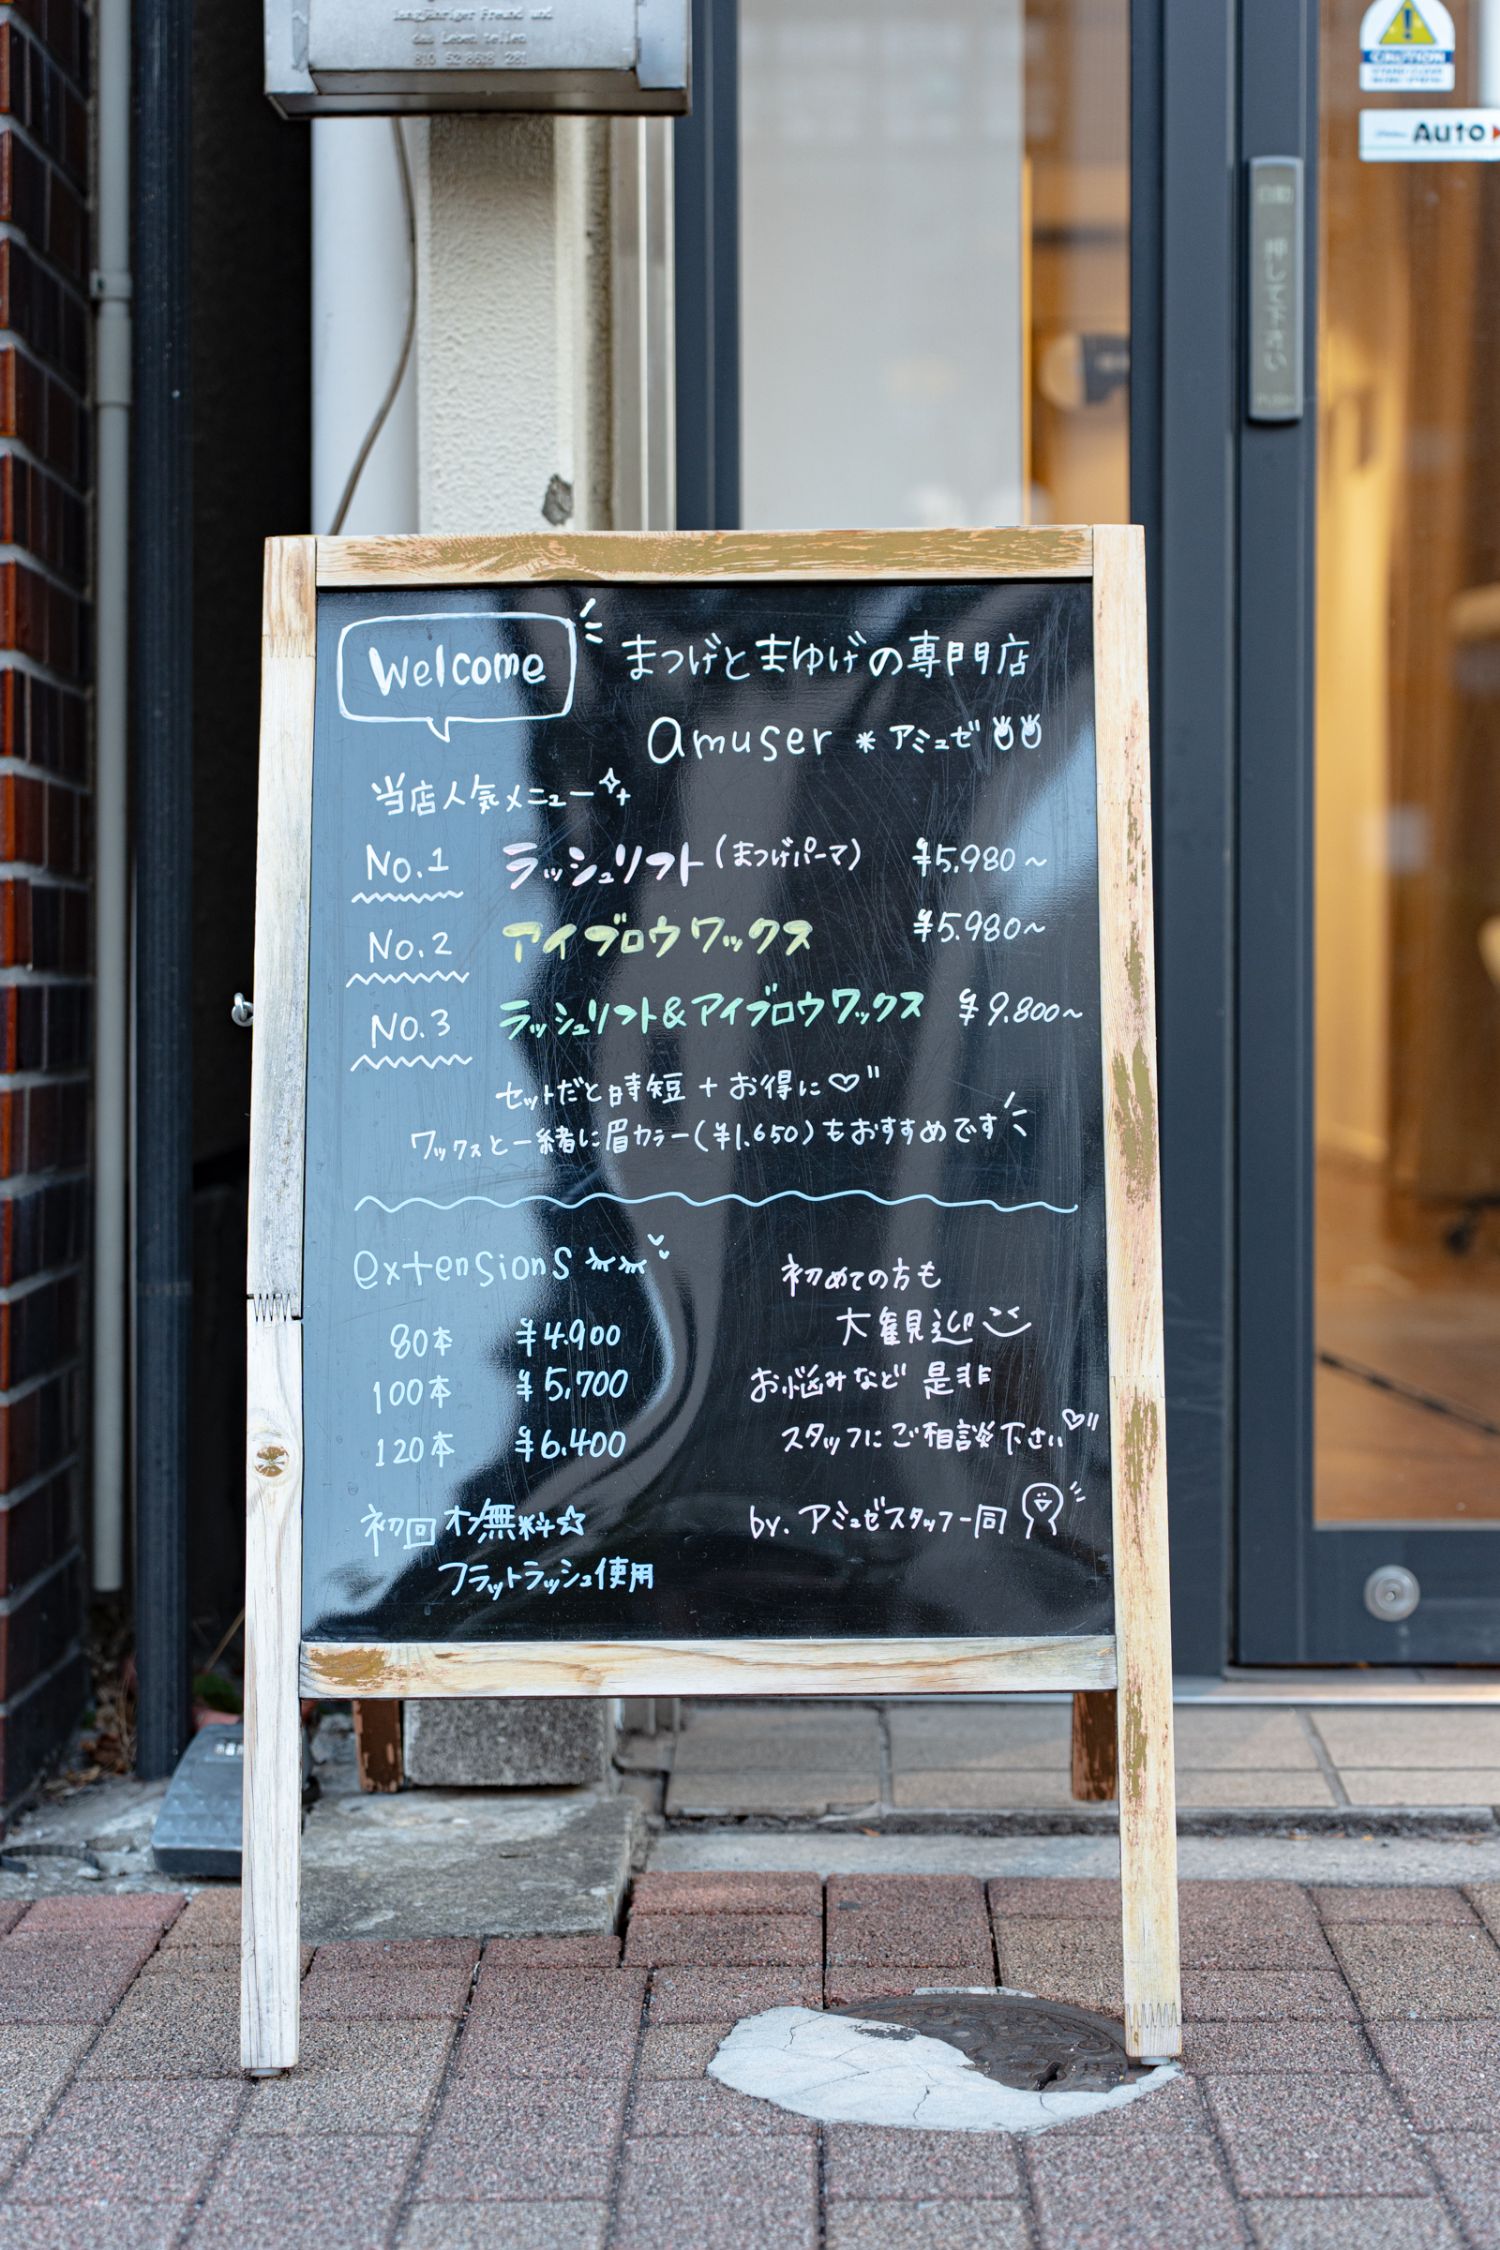 langjähriger Freund und
das Leben teilen
810 52 8618 281
CAUTION
Auto
自動
押してください
PUSH
Welcome
まつげとまゆげの専門店
amuser * アミュゼ
当店人気メニュー
No.1 ラッシュリフト(まつげパーマ) ¥5,980〜
No.2 アイブロウワックス ¥5,980〜
No.3 ラッシュリフト&アイブロウワックス ¥9,800〜
セットだと時短+お得に♡"
ワックスと一緒に眉カラー(¥1,650)もおすすめです
extensions
80本 ¥4,900
100本 ¥5,700
120本 ¥6,400
初回オフ無料☆
フラットラッシュ使用
初めての方も
大観迎
お悩みなど是非
スタッフにご相談下さい♡"
by. アミュゼスタッフ一同